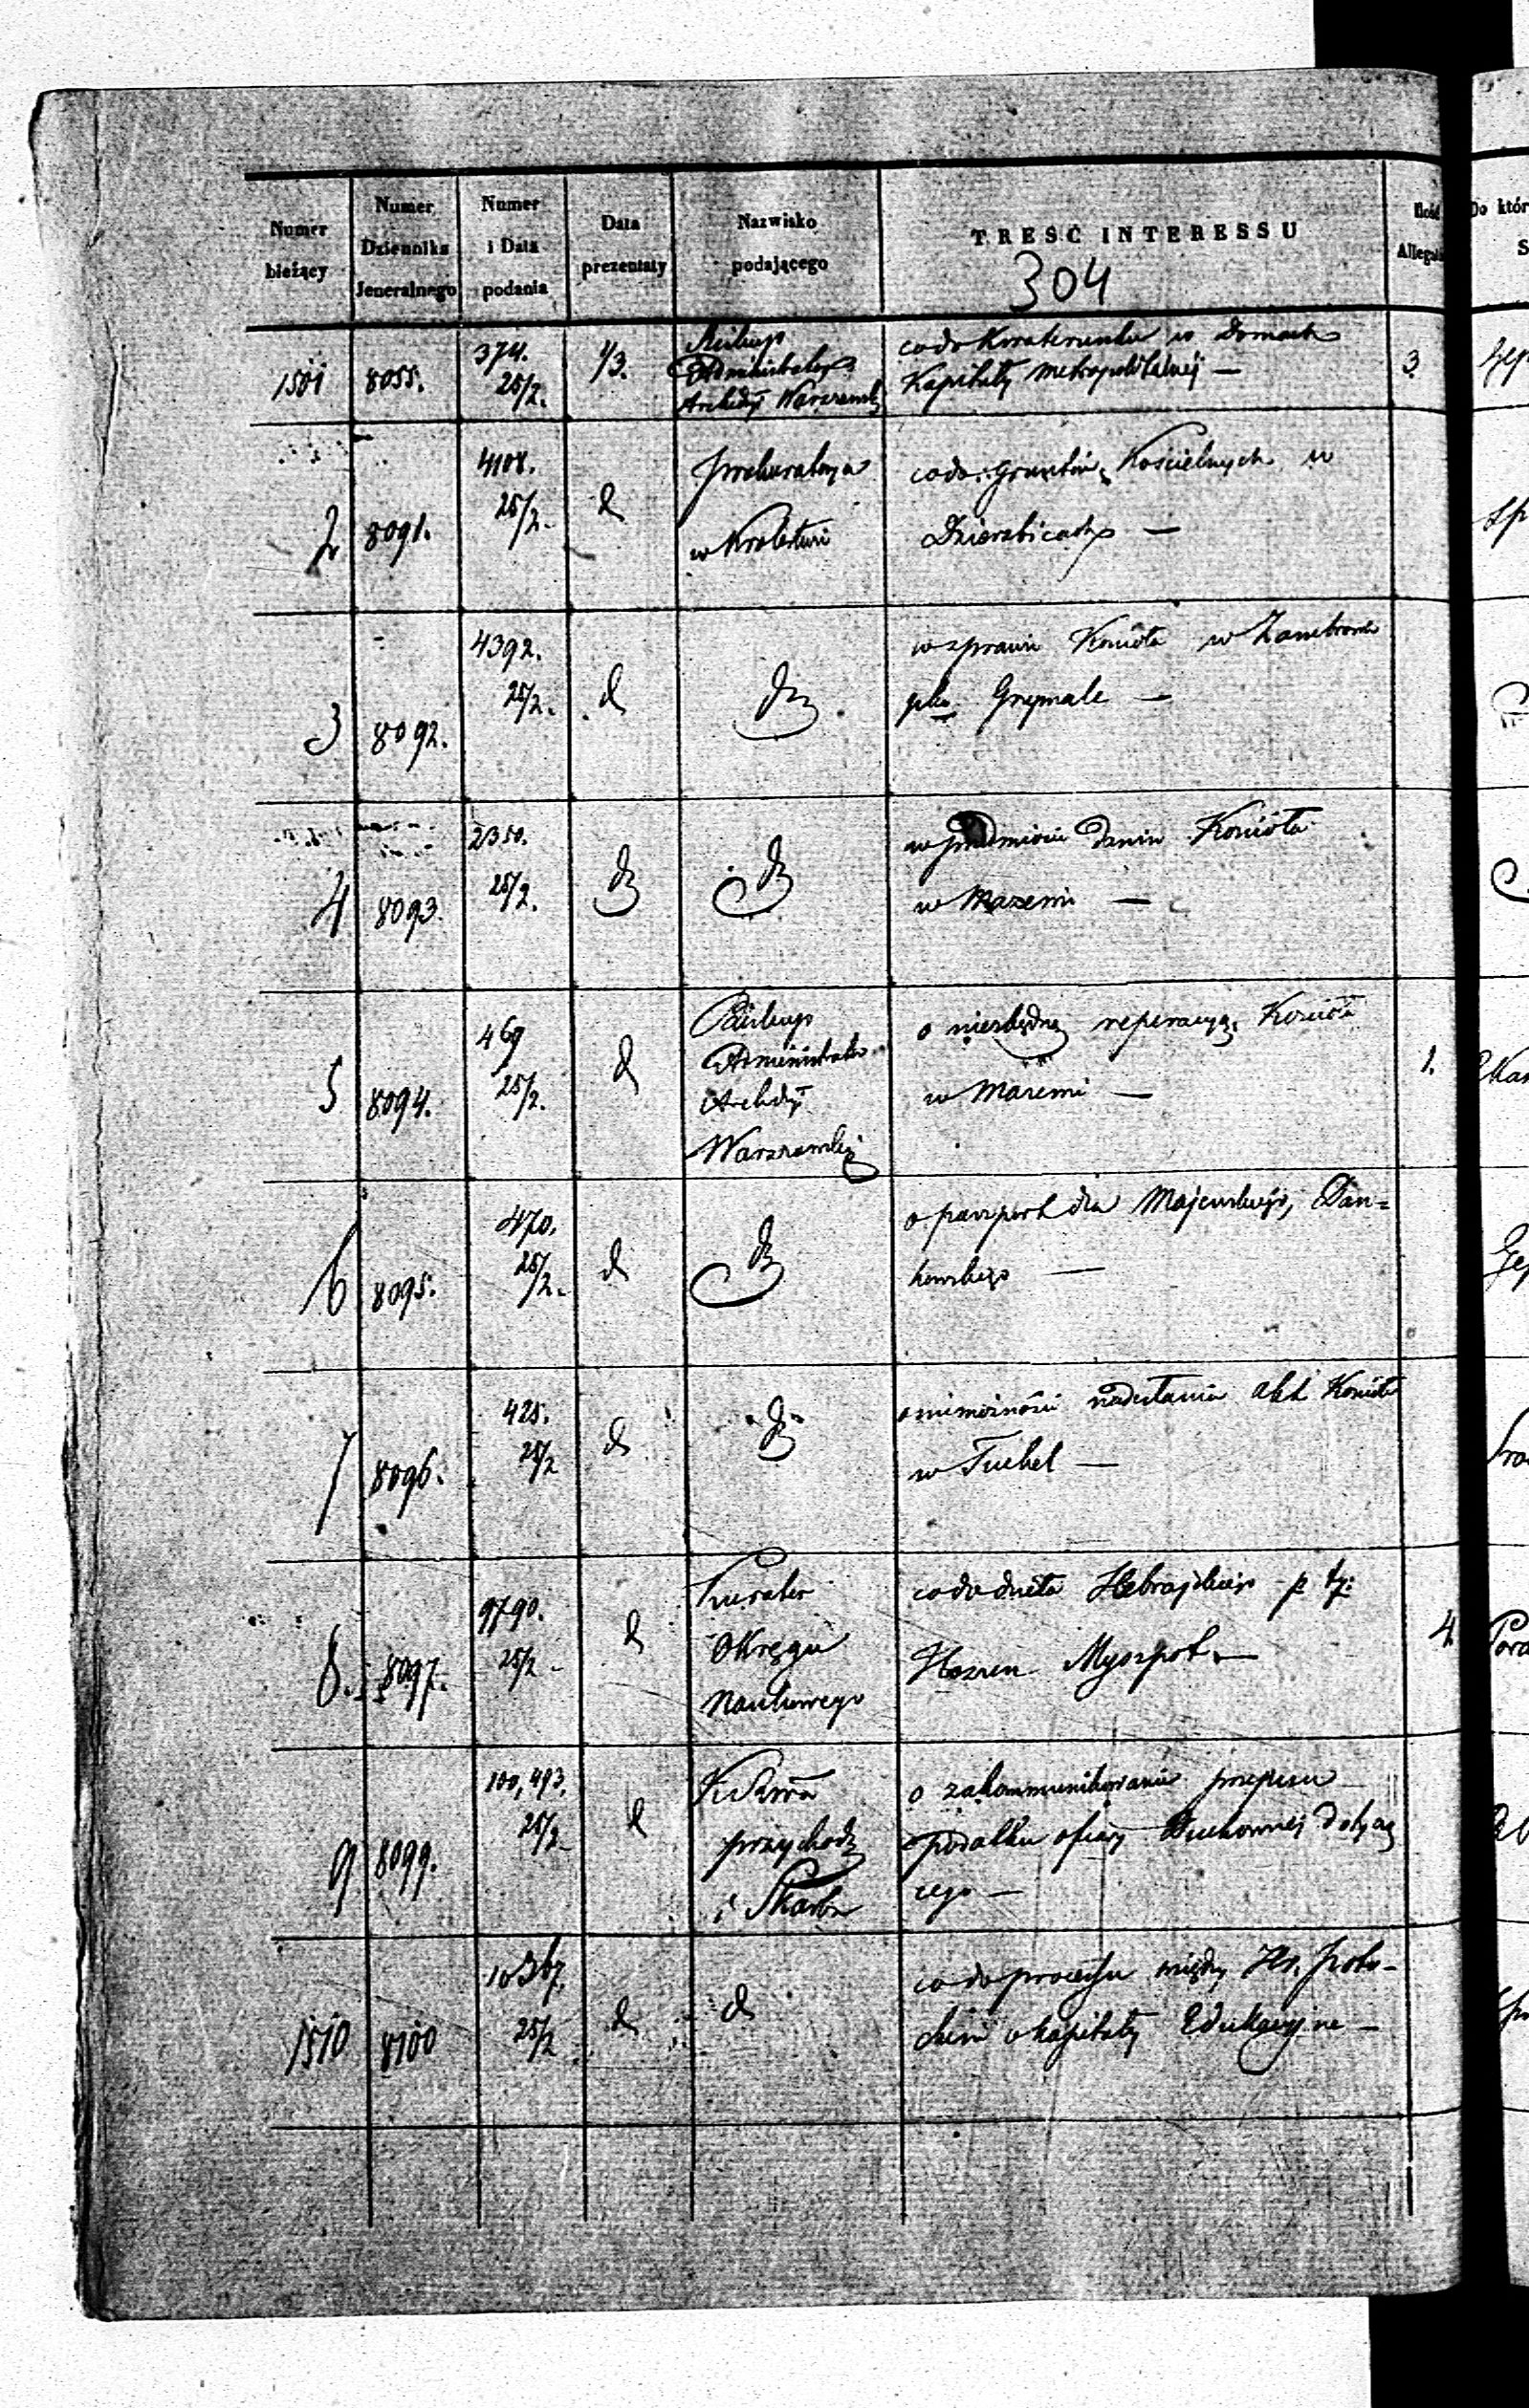 Numer bieżący
Numer Dziennika Jeneralnego
Numer i Data podania
Data prezentaty
Nazwisko podającego
TRESĆ INTERESSU
Ilość Allegat
Do któr
304
1501 8055. 374. 25/2. 1/3. Biskup Administrator Archidyi Warszawsk co do Kwaterunku w Domach 3
Kapituły Metropolitalnej —
2 8091. 4108. 25/2. d Prokuratorya w Królestwie co do Gruntów Kościelnych w
Dzierzbicach —
3 8092. 4392. 25/2. d dto w sprawie Kościoła w Zambrowie
plko Grzymale —
4 8093. 2350. 25/2. dto dto w przedmiocie Danin Kościoła
w Mazewi —
5 8094. 469 25/2. d Biskup Administrator Archidyi Warszawskiej o niezbędnej reperacyą Kościoła 1.
w Mazewi —
6 8095. 470. 25/2. d dto o paszport dla Majewskiego, Dan=
kowskiego —
7 8096. 425. 25/2 d dto o niemożności nadesłania Akt Kościoła
w
8. 8097. 9790. 25/2 d Kurator Okręgu Naukowego co do dzieła Hebrajskiego p tz: 4
9 8099. 100,493. 25/2 d K Rzwa Przychod i Skarbu o zakommunikowanie przepisu
podatku ofiary Duchownej dotyczą
cego —
1510 8100 10367. 25/2 d d co do processu między Hr. Poto-
ckim o kapitały Edukacyjne —